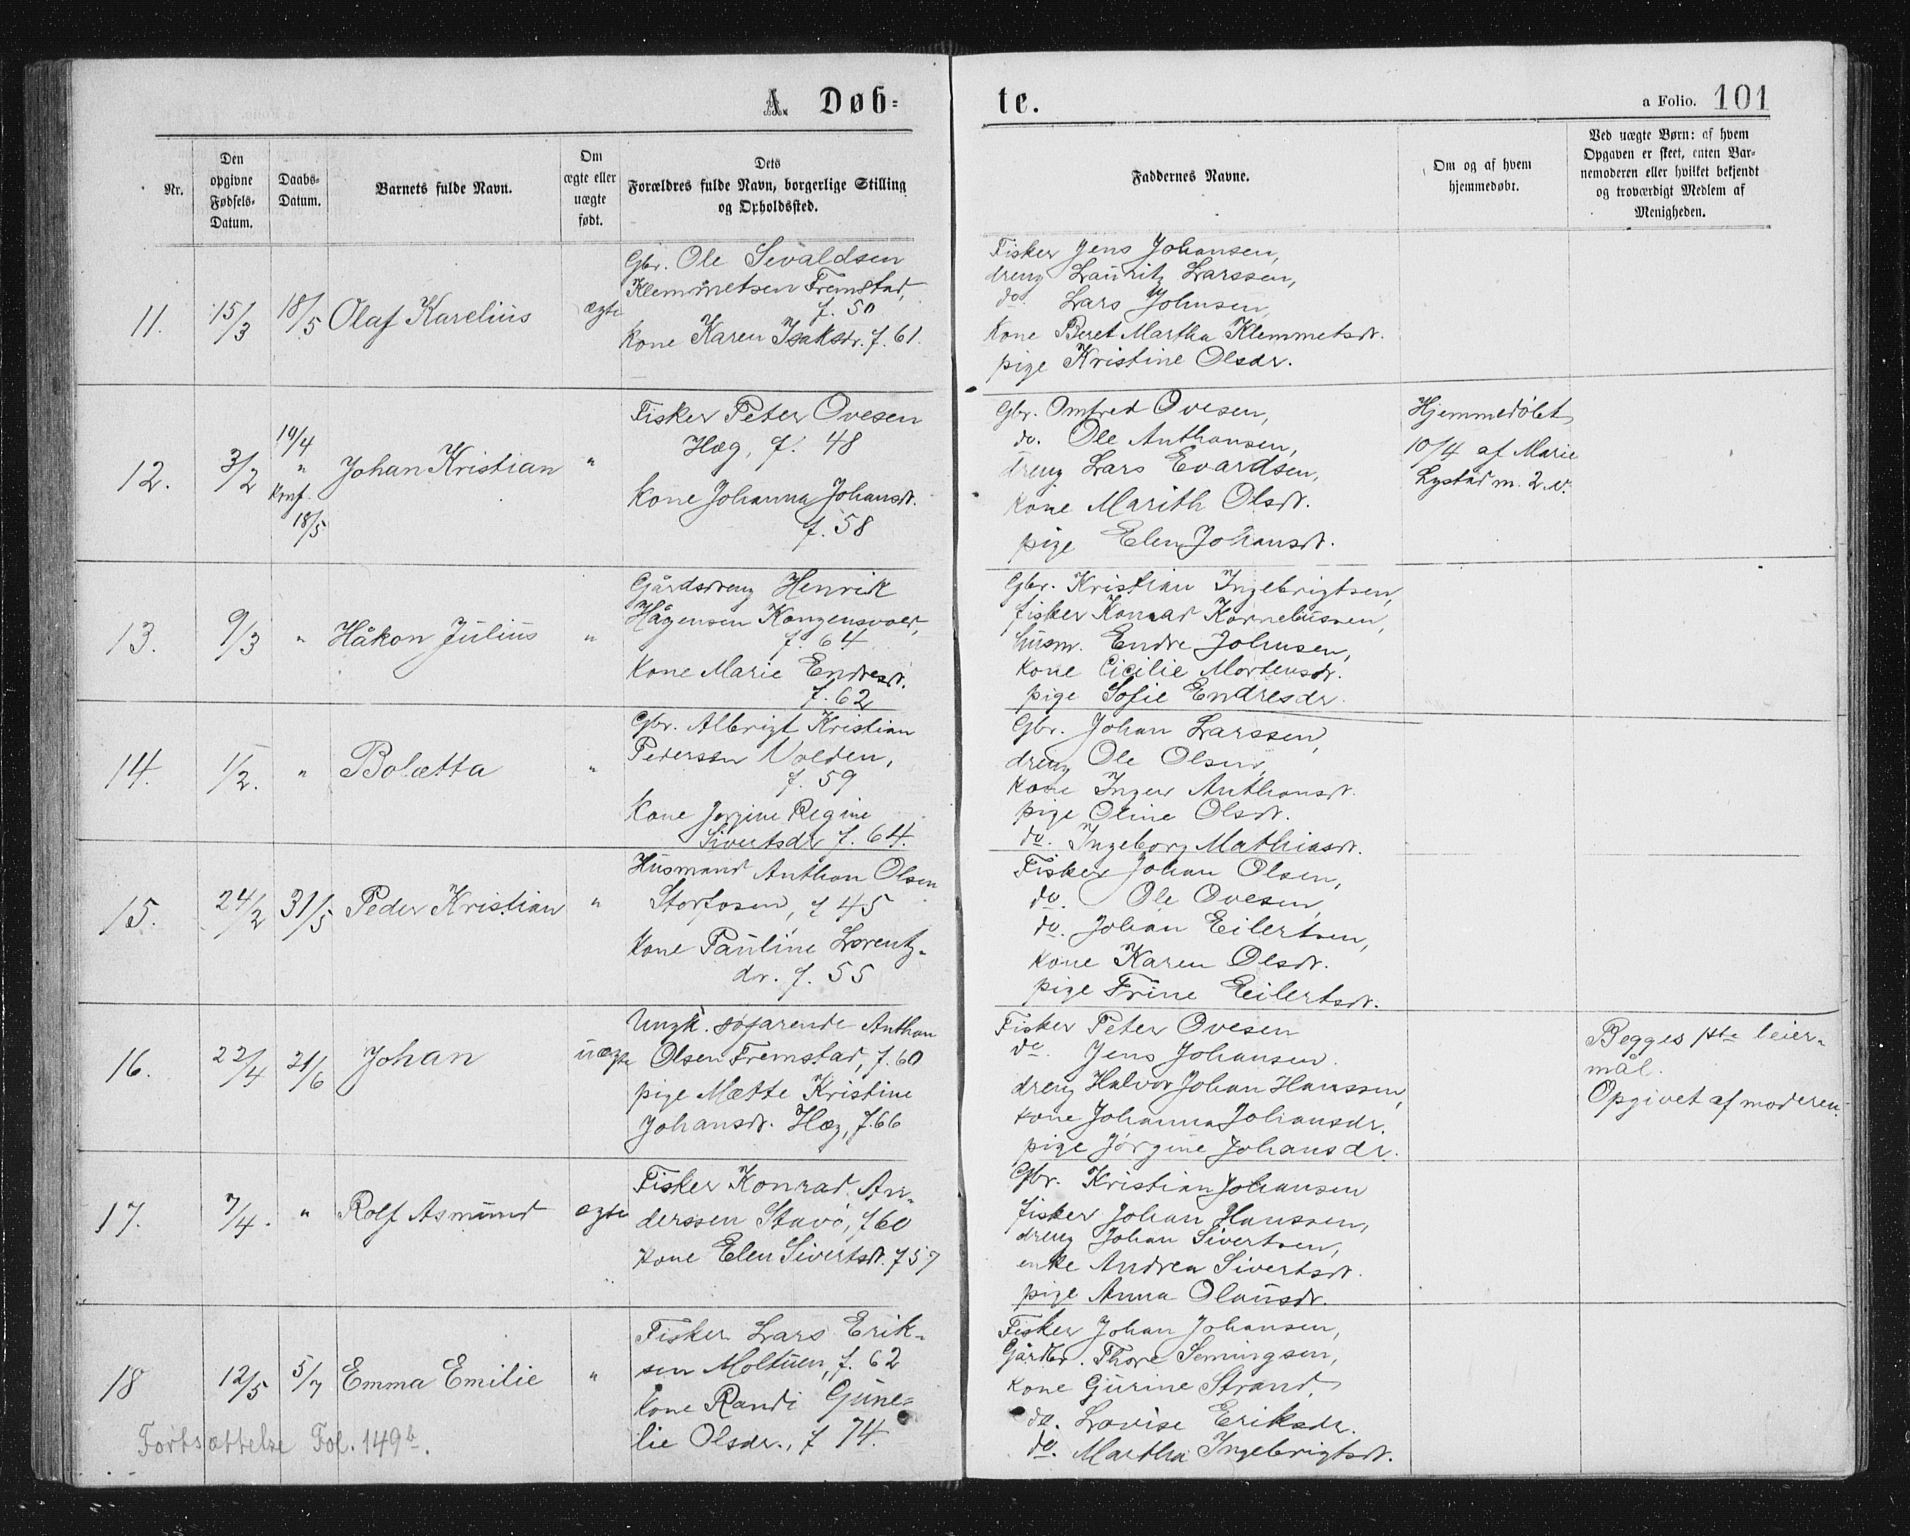 A. Døb=
te.
a Folio. 101
Nr.
Den
opgivne
Fødsels-
Datum.
Daabs-
Datum.
Barnets fulde Navn.
Om
ægte eller
uægte
født.
Dets
Forældres fulde Navn, borgerlige Stilling
og Opholdssted.
Faddernes Navne.
Om og af hvem
hjemmedøbt.
Ved uægte Børn: af hvem
Opgaven er skeet, enten Bar-
nemoderen eller hvilket bekjendt
og troværdigt Medlem af
Menigheden.
11.
15/3
18/5
Olaf Karelius
ægte
Gbr. Ole Sivaldsen
Klemmetsen Fremstad,
f. 50
Kone Karen Isaksdr. f. 61.
Fisker Jens Johansen,
dreng Lauritz Larssen,
do. Lars Johnsen,
Kone Beret Martha Klemmetsdr.
pige Kristine Olsdr.
12.
3/2
10/4
"
Konf.
18/5
Johan Kristian
"
Fisker Peter Ovesen
Hæg, f. 48
Kone Johanna Johansdr.
f. 58
Gbr. Omfred Ovesen,
do. Ole Anthonsen,
dreng Lars Evardsen,
Kone Marith Olsdr.
pige Elen Johansdr.
Hjemmedøbt
10/4 af Marie
Lystad m. 2 v.
13.
9/3
"
Håkon Julius
"
Gårdsdreng Henrik
Hågensen Kongensvold,
f. 64
Kone Marie Endresdr.
f. 62
Gbr. Kristian Ingebrigtsen,
fisker Konrad Korneliussen,
husm. Endre Johnsen,
Kone Cicilie Mortensdr.
pige Sofie Endresdr.
14.
1/2.
"
Bolætta
"
Gbr. Albrigt Kristian
Pederssen Volden,
f. 59
Kone Jørgine Regine
Sivertsdr f. 64.
Gbr. Johan Larssen,
dreng Ole Olsen,
Kone Inger Anthonsdr.
pige Oline Olsdr.
do. Ingeborg Mathiasdr.
15.
24/2
31/5
Peder Kristian
"
Husmand Anthon Olsen
Storfosen, f 45
Kone Pauline Lorentz-
dr. f. 55
Fisker Johan Olsen,
do. Ole Ovesen,
do. Johan Eilertsen,
Kone Karen Olsdr.
pige Trine Eilertsdr.
16.
22/4
21/6
Johan
uægte
Ungk. søfarende Anthon
Olsen Fremstad, f. 60
pige Mætte Kristine
Johansdr. Hæg, f. 66
Fisker Peter Ovesen
do. Jens Johansen.
dreng Halvor Johan Hanssen,
Kone Johanna Johansdr.
pige Jørgine Johansdr.
Begges 1ste leier-
mål.
Opgivet af moderen.
17.
7/4.
"
Rolf Asmund
ægte
Fisker Konrad An-
derssen Stavø, f 60
Kone Elen Sivertsdr. f 57
Gbr. Kristian Johansen
fisker Johan Hanssen,
dreng Johan Sivertsen,
enke Andrea Sivertsdr.
pige Anna Olausdr.
18
12/5
5/7
Emma Emilie
"
Fisker Lars Erik-
sen Moltuen, f. 62
Kone Randi Gune-
lie Olsdr., f 74.
Fisker Johan Johansen,
Gårdbr. Thore Semingsen,
Kone Gurine Strand,
do. Lovise Eriksdr.
do. Martha Ingebrigtsdr.
Fortsættelse Fol. 149b.